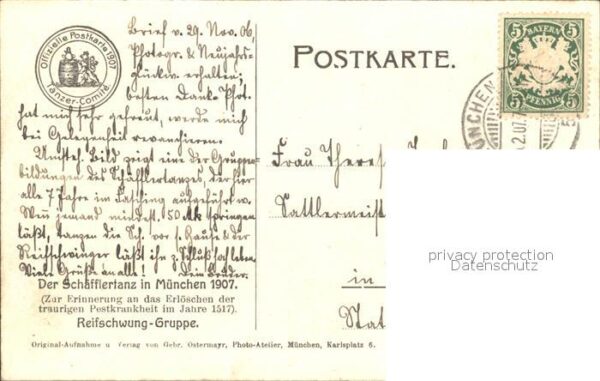 Offizielle Postkarte 1907
Tänzer-Comité
Brief v. 29. Nov. 06,
Photogr. & Neujahrs-
glückw. erhalten;
besten Dank. Phot.
hat mich sehr gefreut, werde mich
bei Gelegenheit revanchieren.
Umsteh. Bild zeigt eine der Gruppen-
bildungen des Schäfflertanzes, der hier
alle 7 Jahre im Fasching aufgeführt w.
Wenn jemand mindest. 50 Mk springen
läßt, tanzen die Sch. vor s. Hause & der
Reifschwinger läßt ihn z. Schluß hochleben.
Viele Grüße an alle! Dein Bruder.
Der Schäfflertanz in München 1907.
(Zur Erinnerung an das Erlöschen der
traurigen Pestkrankheit im Jahre 1517).
Reifschwung-Gruppe.
Original-Aufnahme u Verlag von Gebr. Ostermayr, Photo-Atelier, München, Karlsplatz 6.
POSTKARTE.
5 BAYERN 5
5 PFENNIG 5
MÜNCHEN
2.07.
Frau Theres
Sattlermeist
in
Stat
privacy protection
Datenschutz